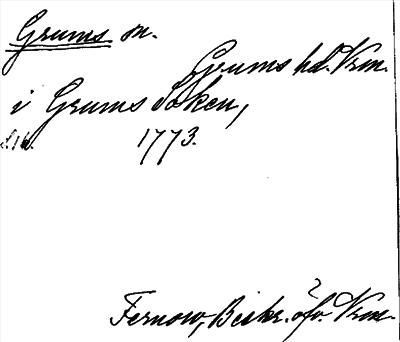 Grums sn.
Grums hd. Vrm.
i Grums Soken,
s. 16. 1773.
Fernow, Beskr. öfv. Vrm.